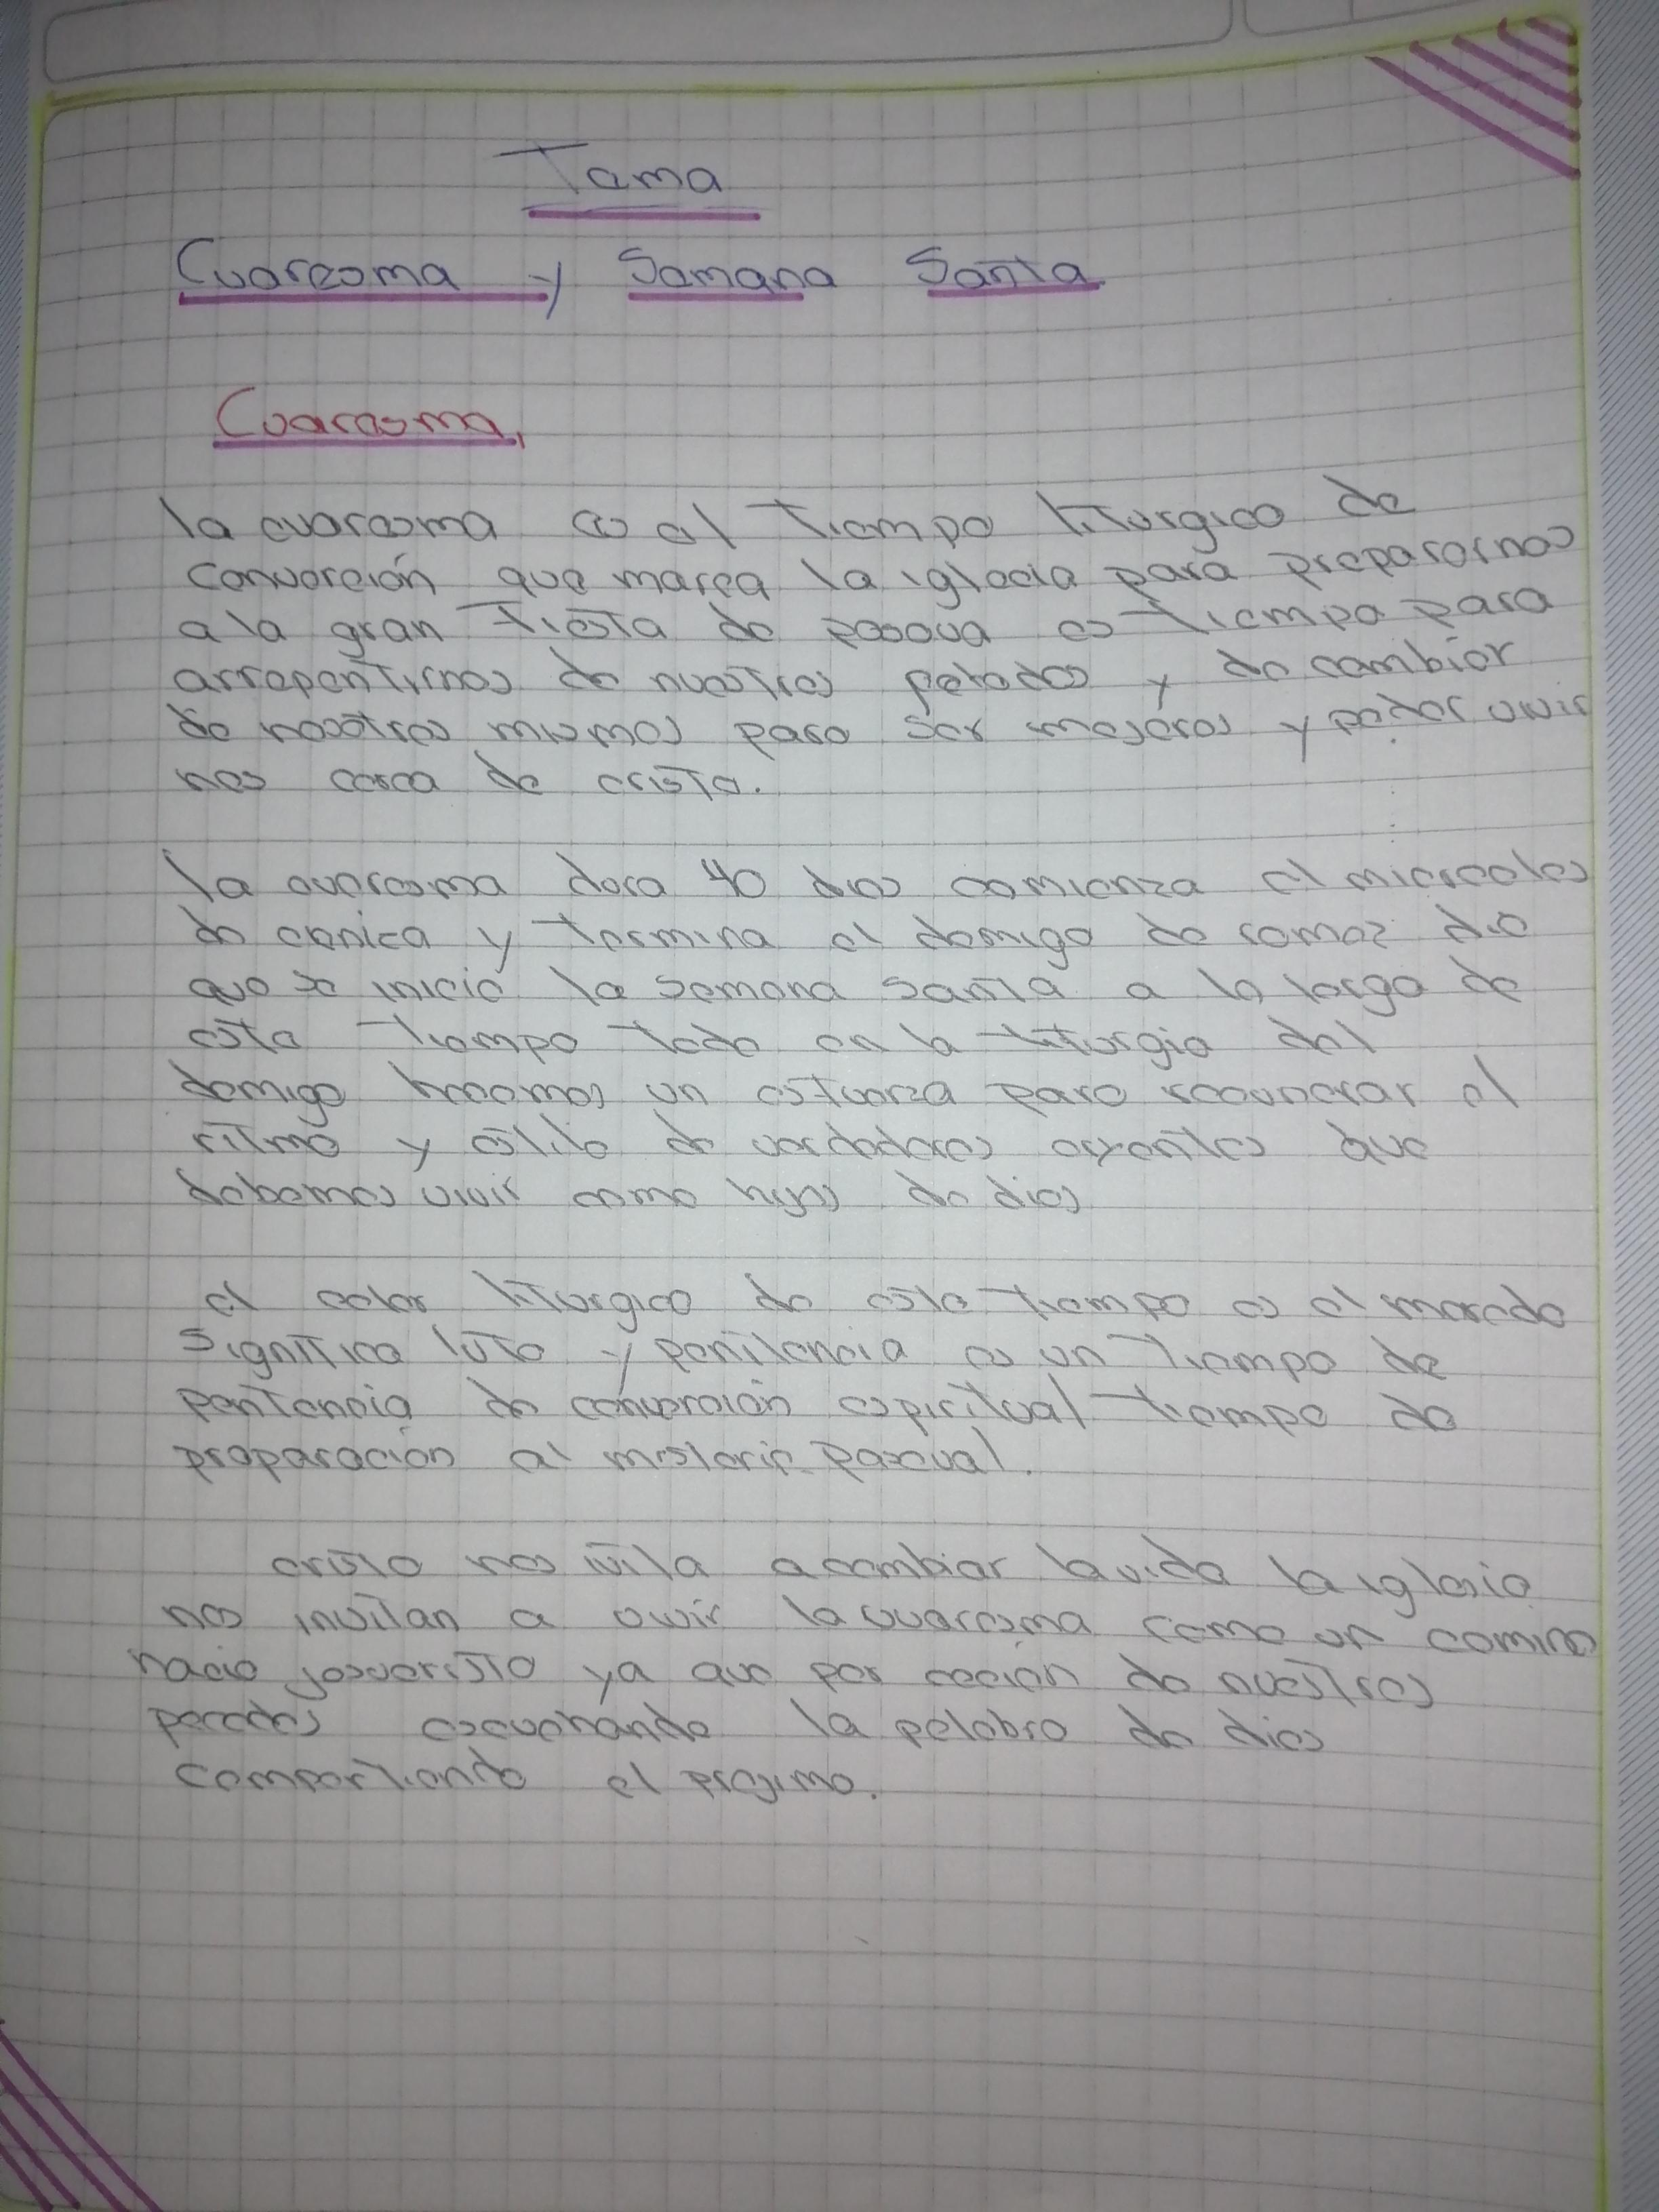 Tema
Cuaresma y Semana Santa
Cuaresma,
la cuaresma es el tiempo litúrgico de
converción que marca la iglecia para prepararnos
a la gran fiesta de pascua es tiempo para
arrepentirnos de nuestros pecados y de cambiar
de nosotros mismos para ser mejores y poder vivir
nos cerca de cristo.
la cuaresma dura 40 dias comienza el miercoles
de cenica y termina el domigo de ramos dia
que se inicio la semana santa a lo largo de
este tiempo todo en la liturgia del
domigo hacemos un esfuerza para recuperar el
ritmo y estilo de verdaderos creyentes que
debemos vivir como hijos de dios
el color liturgico de este tiempo es el morado
significa luto y penitencia es un tiempo de
pentencia de converción espiritual tiempo de
preparación al misterio pascual.
cristo nos ivita a cambiar la vida la iglesia
nos invitan a vivir la cuaresma como un camino
hacia jesucristo ya que por de nuestros
pecados escuchando la palabra de dios
compartiendo el projimo.